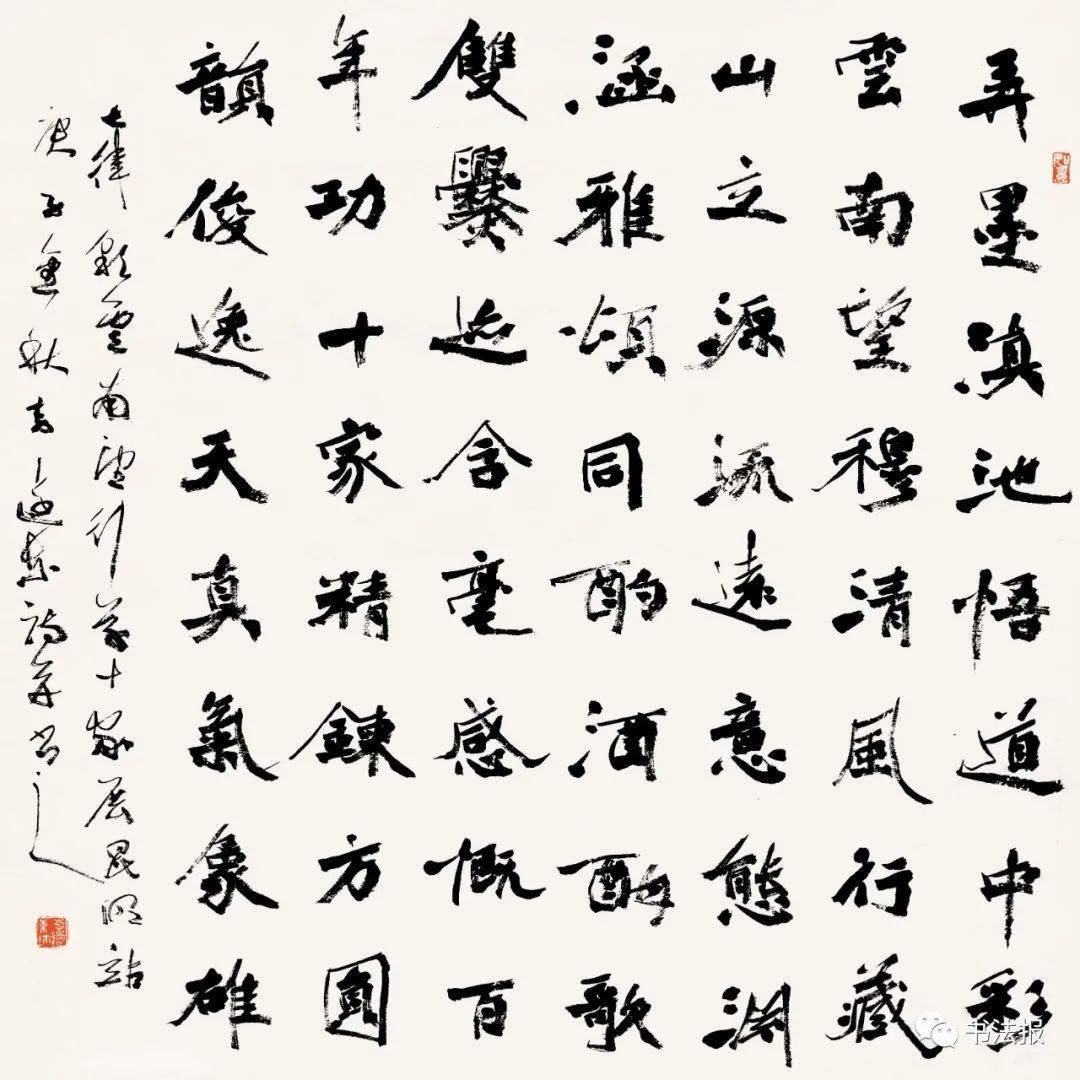 弄墨滇池悟道中彩
雲南望穆清風行藏
山立源流遠意態淵
涵雅頌同酌酒酣歌
雙爨迹含毫感慨百
年功十家精鍊方圓
韻俊逸天真氣象雄
七律彩雲南望行草十家展昆明站
庚子金秋詩并書之
书法报